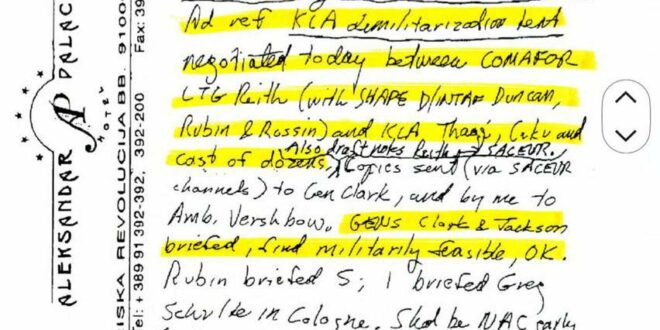 Ad ref KLA demilitarization text
negotiated today between COMAFOR
LTG Reith (with SHAPE D/INTAF Duncan,
Rubin & Rossin) and KLA Thaqi, Ceku and
cast of dozens. Also draft notes Reith → SACEUR.
Copies sent (via SACEUR
channels) to Gen Clark, and by me to
Amb. Vershbow. GENS Clark & Jackson
briefed, find militarily feasible, OK.
Rubin briefed S; I briefed Greg
Schulte in Cologne. Shd be NAC early
ALEKSANDAR PALAC
AP
HOTEL
ISKA REVOLUCIJA BB. 9100
Tel: +389 91 392-392, 392-200 Fax: 39